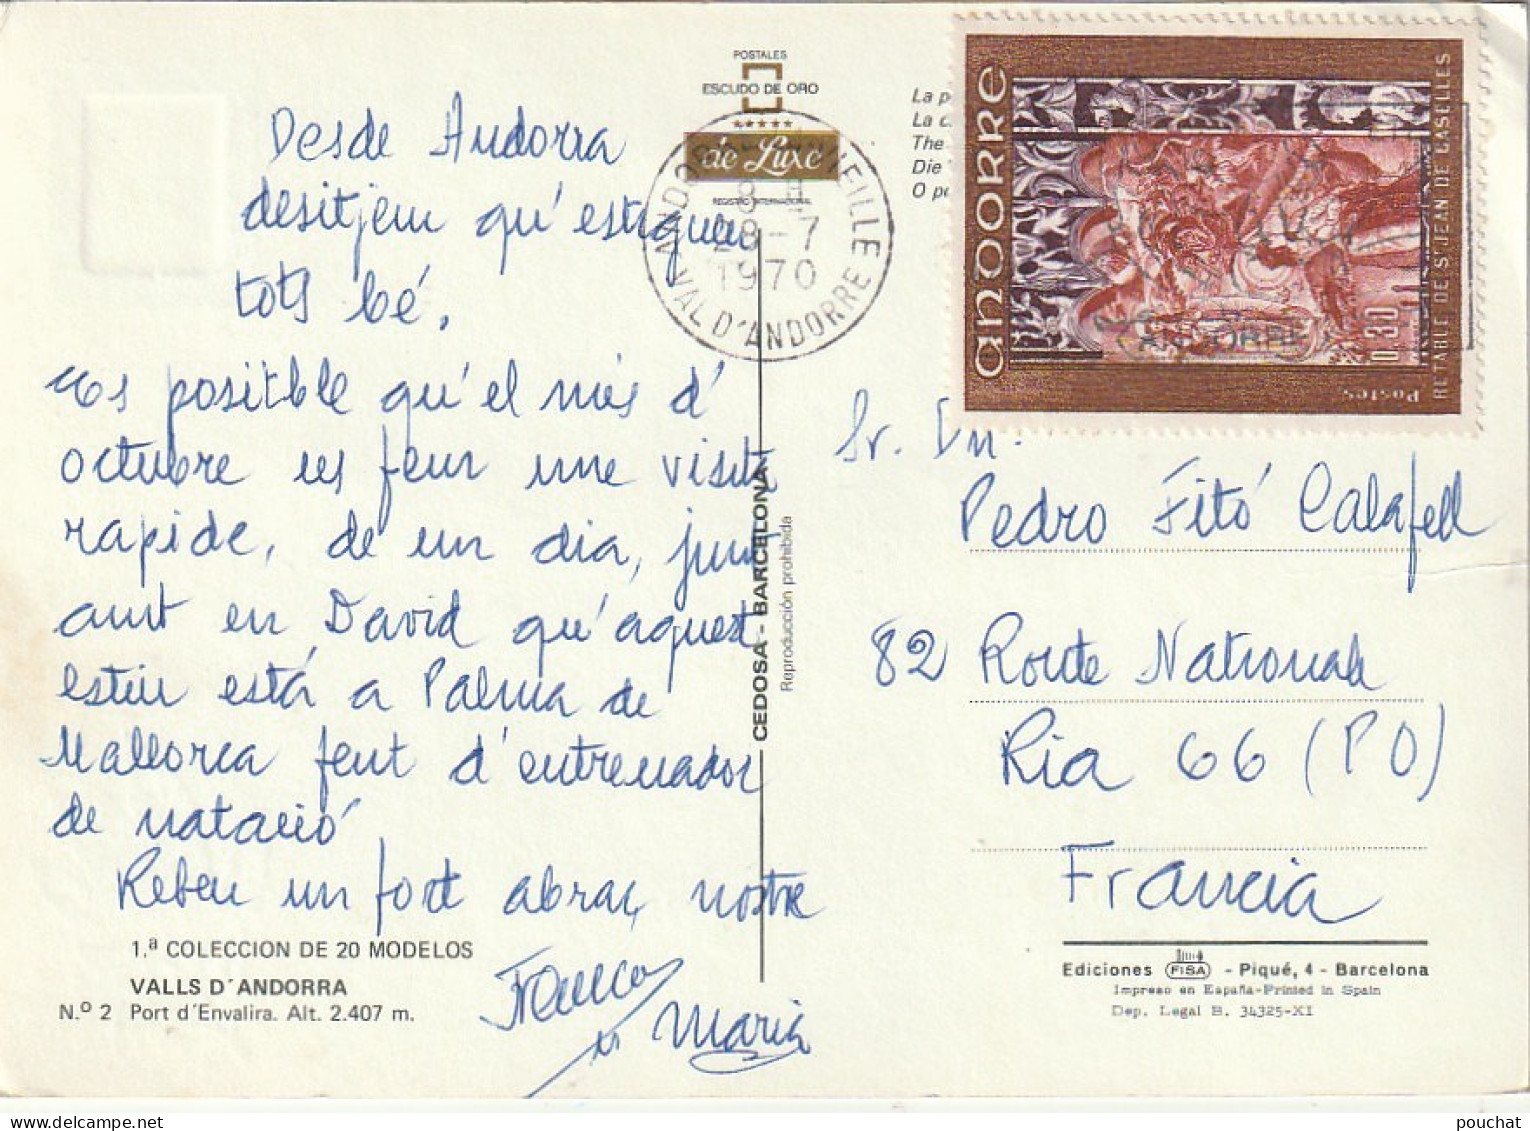 POSTALES
ESCUDO DE ORO
de Luxe
REGISTRO INTERNACIONAL
La p
La c
The
Die
O pe
ANDORRE
0,30
Postes
RETABLE DE St JEAN DE CASELLES
8 H
28-7
1970
VAL D'ANDORRE
Desde Andorra
desitjem qu'estigueu
tots bé.
Es positble qu'el més d'
octubre us fem une visita
rapide, de un dia, junt
amt en David qu'aquest
estiu está a Palma de
Mallorca fent d'entrenador
de natació
Rebeu un fort abraç nostre
Maria
CEDOSA - BARCELONA
Reproducción prohibida
Sr. Dn.
Pedro Fitó Calafell
82 Route Nationale
Ria 66 (PO)
Francia
1.ª COLECCION DE 20 MODELOS
VALLS D'ANDORRA
N.º 2 Port d'Envalira. Alt. 2.407 m.
Ediciones FISA - Piqué, 4 - Barcelona
Impreso en España-Printed in Spain
Dep. Legal B. 34325-XI
pouchat